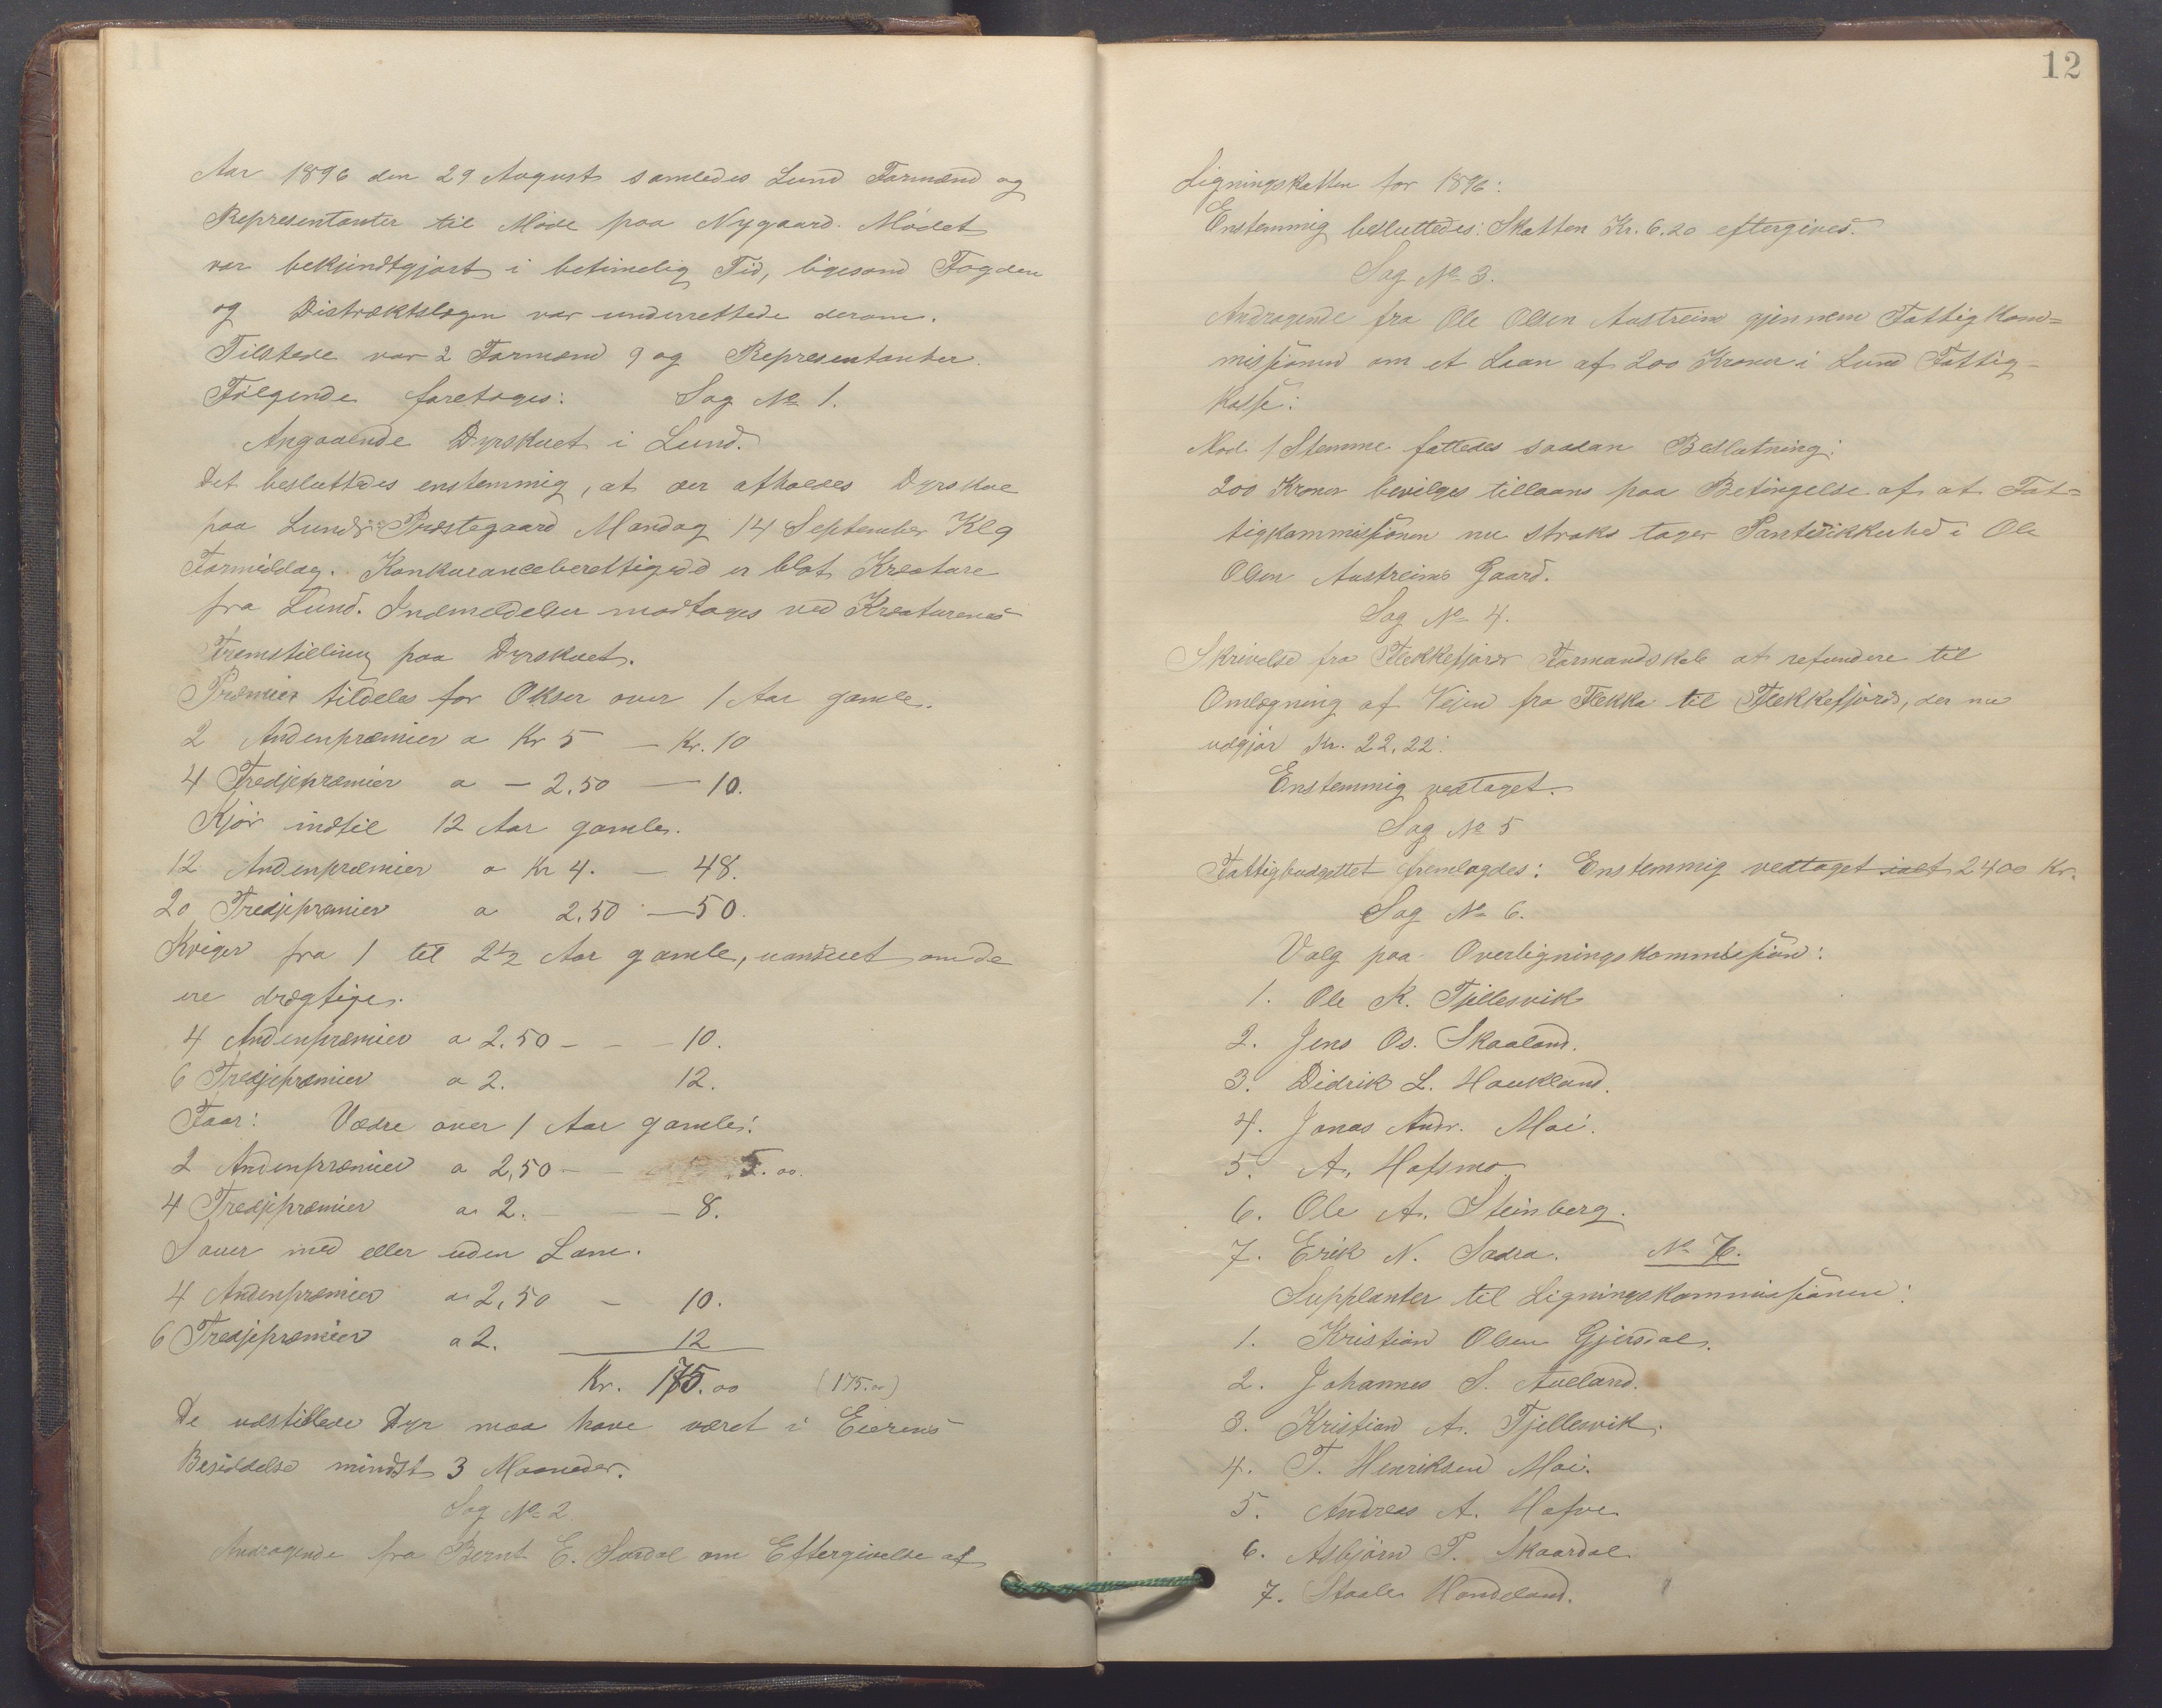 Aar 1896 den 29 August samledes Lund Formænd og
Representanter til Møde paa Nygaard. Mødet
var bekjendtgjort i betimelig Tid, ligesom Fogden
og Distriktslægen var underrettede derom.
Tilstede var 2 Formænd 9 og Representanter.
Følgende foretoges: Sag No 1.
Angaaende Dyrskuet i Lund.
Det besluttedes enstemmig, at der afholdes Dyrskue
paa Lunds Præstegaard Mandag 14 September Kl 9
Formiddag. Konkuranceberettigede er blot Kreature
fra Lund. Indmeldelser modtages ved Kreaturenes
Fremstilling paa Dyrskuet.
Præmier tildeles for Okser over 1 Aar gamle.
2 Andenpræmier a Kr 5 — Kr. 10
4 Tredjepræmier a — 2.50 — 10.
Kjør indtil 12 Aar gamle.
12 Andenpræmier a Kr 4. — 48.
20 Tredjepræmier a 2.50 — 50.
Kviger fra 1 til 2 1/2 Aar gamle, uanseet om de
ere drægtige.
4 Andenpræmier a 2.50 - - - 10.
6 Tredjepræmier a 2. 12.
Faar: Vædre over 1 Aar gamle:
2 Andenpræmier a 2,50 - - 5.00.
4 Tredjepræmier a 2. - - - 8.
Sauer med eller uden Lam.
4 Andenpræmier a 2,50 - 10.
6 Tredjepræmier a 2. 12
Kr. 175.00 (175.00)
De udstillede Dyr maa have været i Eierens
Besiddelse mindst 3 Maaneder.
Sag No 2.
Andragende fra Bernt E. Surdal om Eftergivelse af
12
Ligningskatten for 1896:
Enstemmig besluttedes: Skatten Kr. 6.20 eftergives.
Sag No 3.
Andragende fra Ole Olsen Austreim gjennem Fattigkom=
missionen om et Laan af 200 Kroner i Lund Fattig-
kasse:
Mod 1 Stemme fattedes saadan Beslutning:
200 Kroner bevilges tillaans paa Betingelse af at Fat=
tigkommissionen nu straks tager Pantesikkerhed i Ole
Olsen Austreims Gaard.
Sag No 4.
Skrivelse fra Flekkefjords Formandskab at refundere til
Omlægning af Vejen fra Flekke til Flekkefjord, der nu
udgjør Kr. 22,22:
Enstemmig vedtaget.
Sag No 5
Fattigbudgettet fremlagdes: Enstemmig vedtaget ialt 2400 Kr.
Sag No 6.
Valg paa Overligningskommission:
1. Ole K. Tjellesvik
2. Jens Os. Skaaland.
3. Didrik L. Haukland.
4. Jonas Andr. Moi.
5. A. Hafsmo
6. Ole A. Steinberg.
7. Erik N. Sadra. No 7.
Supplanter til Ligningskommissionen:
1. Kristian Olsen Gjersdal.
2. Johannes S. Aueland.
3. Kristian A. Tjellesvik.
4. T. Henriksen Moi.
5. Andreas A. Hofve
6. Asbjørn T. Skaardal
7. Staale Handeland.